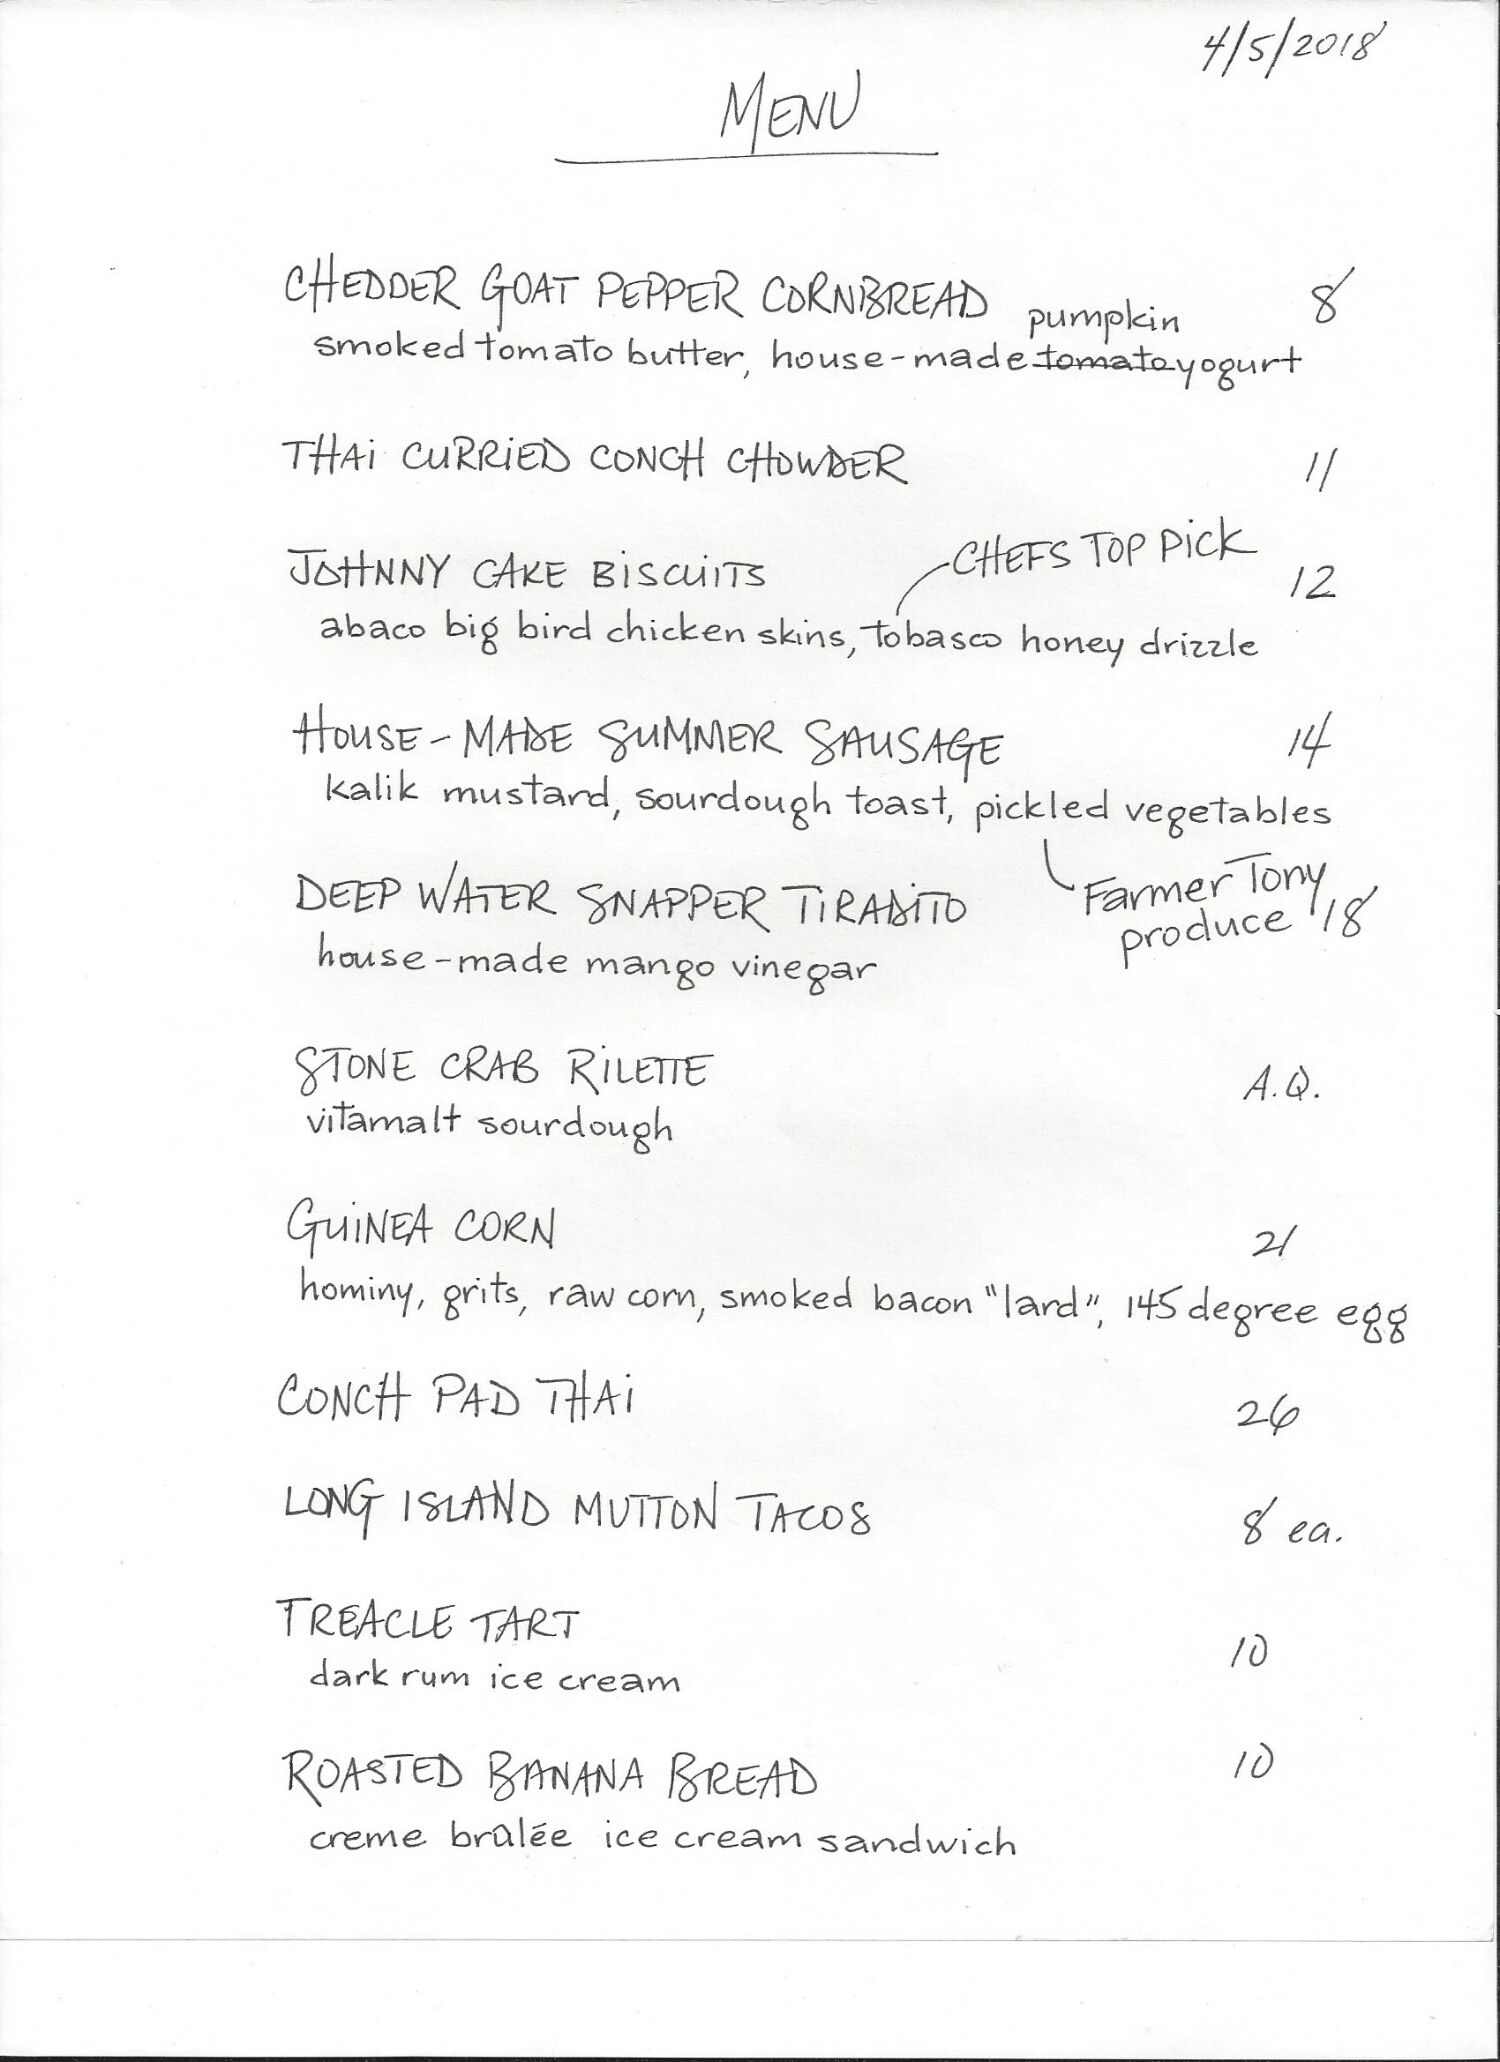 4/5/2018
MENU
CHEDDER GOAT PEPPER CORNBREAD pumpkin 8
smoked tomato butter, house-made tomato yogurt
THAI CURRIED CONCH CHOWDER 11
CHEFS TOP PICK
JOHNNY CAKE BISCUITS 12
abaco big bird chicken skins, tobasco honey drizzle
HOUSE-MADE SUMMER SAUSAGE 14
kalik mustard, sourdough toast, pickled vegetables
Farmer Tony
produce
DEEP WATER SNAPPER TIRADITO 18
house-made mango vinegar
STONE CRAB RILETTE A.Q.
vitamalt sourdough
GUINEA CORN 21
hominy, grits, raw corn, smoked bacon "lard", 145 degree egg
CONCH PAD THAI 26
LONG ISLAND MUTTON TACOS 8 ea.
TREACLE TART 10
dark rum ice cream
ROASTED BANANA BREAD 10
creme brûlée ice cream sandwich